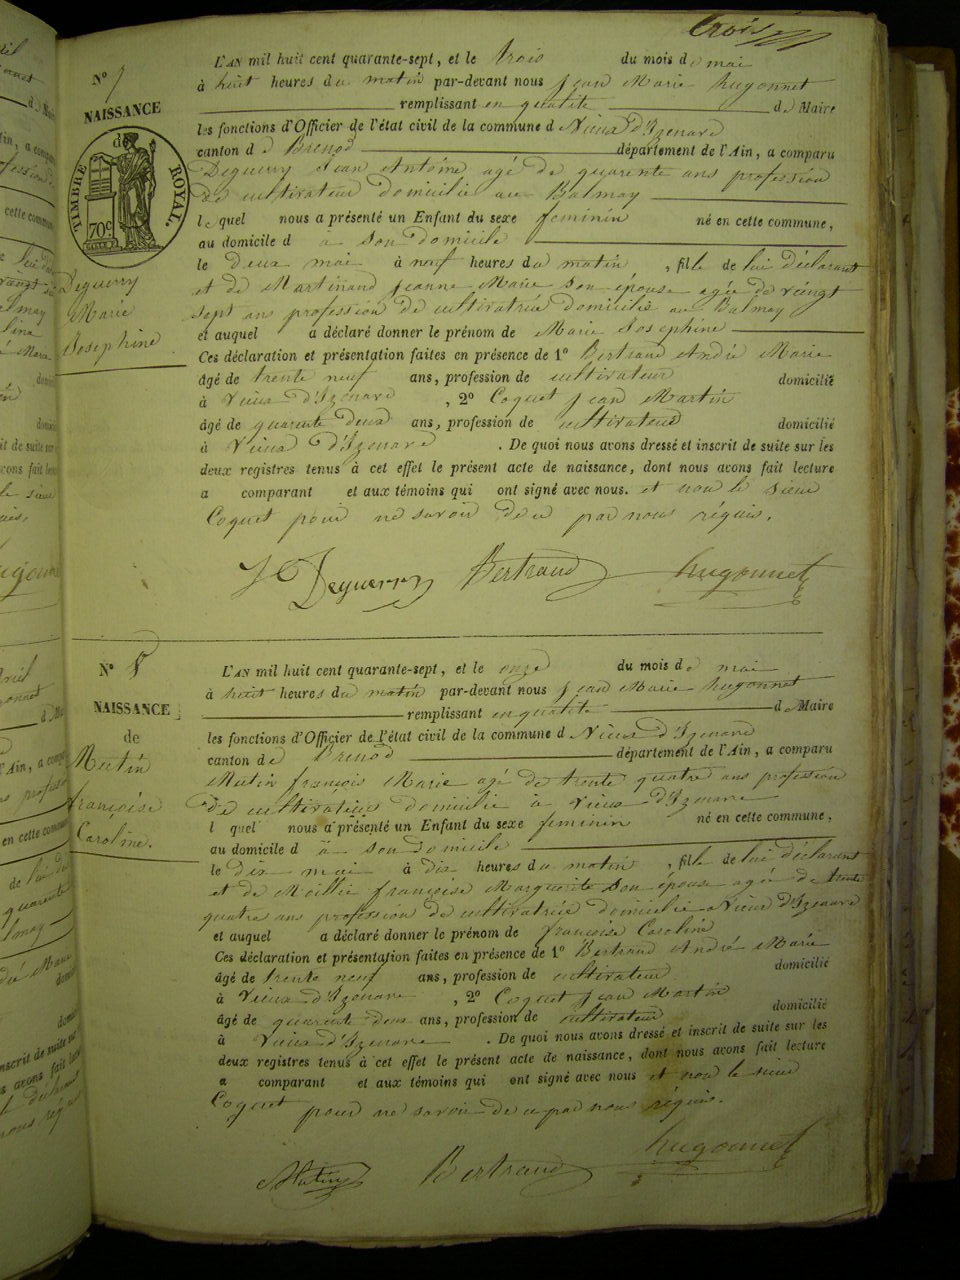 trois
N° 7
NAISSANCE
TIMBRE ROYAL.
70c
Deguerry
Marie
Josephine
L'AN mil huit cent quarante-sept, et le trois du mois de mai
à huit heures du matin par-devant nous Jean Marie hugonnet
remplissant en qualité de Maire
les fonctions d'Officier de l'état civil de la commune d Vieux d'Izenave
canton d e Brenod département de l'Ain, a comparu
Deguerry Jean Antoine agé de quarente ans profession
de cultivateur domicilié au Balmay
lequel nous a présenté un Enfant du sexe feminin né en cette commune,
au domicile d à son domicile
le deux mai à neuf heures du matin, fille de lui déclarant
et de Martinand jeanne Marie son épouse agée de veingt
sept ans profession de cultivatrice domicilié au Balmay
et auquel a déclaré donner le prénom de Marie Josephine
Ces déclaration et présentation faites en présence de 1° Bertrand André Marie
âgé de trente neuf ans, profession de cultivateur domicilié
à Vieux d'Izenave, 2° Coquet jean Martin
âgé de quarente deux ans, profession de cultivateur domicilié
à Vieux d'Izenave. De quoi nous avons dressé et inscrit de suite sur les
deux registres tenus à cet effet le présent acte de naissance, dont nous avons fait lecture
a comparant et aux témoins qui ont signé avec nous. et non le sieur
Coquet pour ne savoir de ce par nous réquis.
Deguerry Bertrand hugonnet
N° 8
NAISSANCE
de
Mutin
françoise
Caroline.
L'AN mil huit cent quarante-sept, et le onze du mois de mai
à huit heures du matin par-devant nous jean Marie hugonnet
remplissant en qualité de Maire
les fonctions d'Officier de l'état civil de la commune d Vieux d'Izenave
canton de Brenod département de l'Ain, a comparu
Mutin françois Marie agé de trente quatre ans profession
de cultivateur domicilié à Vieux d'Izenave
l quel nous a présenté un Enfant du sexe feminin né en cette commune,
au domicile d à son domicile
le dix mai à dix heures du matin, fille de lui déclarant
et de françoise Marguerite son épouse agée de trente
quatre ans profession de cultivatrice domicilié a Vieux d'Izenave
et auquel a déclaré donner le prénom de françoise Caroline
Ces déclaration et présentation faites en présence de 1° Bertrand André Marie
âgé de trente neuf ans, profession de cultivateur domicilié
à Vieux d'Izenave, 2° Coquet jean Martin
âgé de quarente deux ans, profession de cultivateur domicilié
à Vieux d'Izenave. De quoi nous avons dressé et inscrit de suite sur les
deux registres tenus à cet effet le présent acte de naissance, dont nous avons fait lecture
a comparant et aux témoins qui ont signé avec nous et non le sieur
Coquet pour ne savoir de ce par nous réquis.
Mutin Bertrand hugonnet